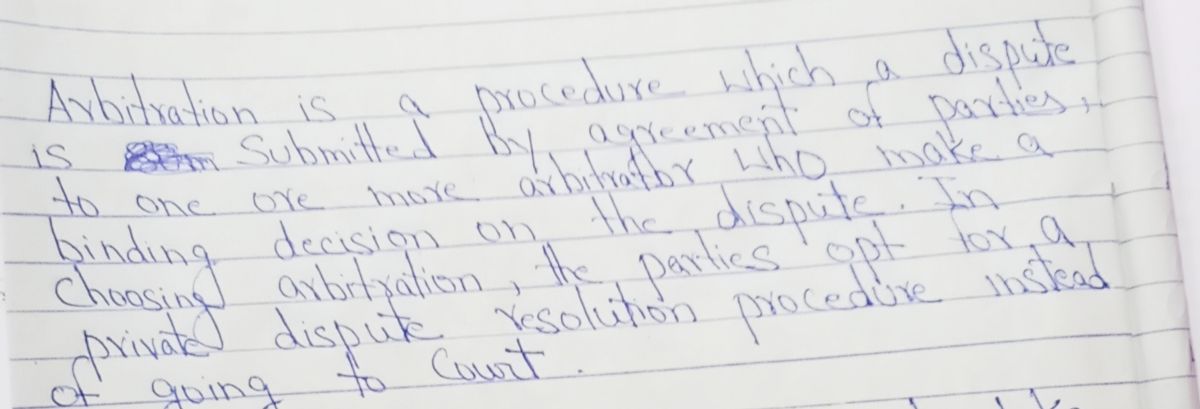 Arbitration is a procedure which a dispute
is Submitted by agreement of parties,
to one ore more arbitrator who make a
binding decision on the dispute. In
Choosing arbitration, the parties opt for a
private dispute resolution procedure instead
of going to Court.